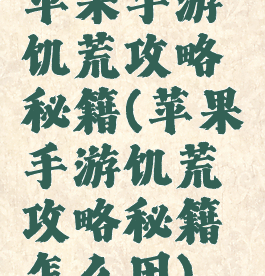 苹果手游
饥荒攻略
秘籍(苹果
手游饥荒
攻略秘籍
怎么用)